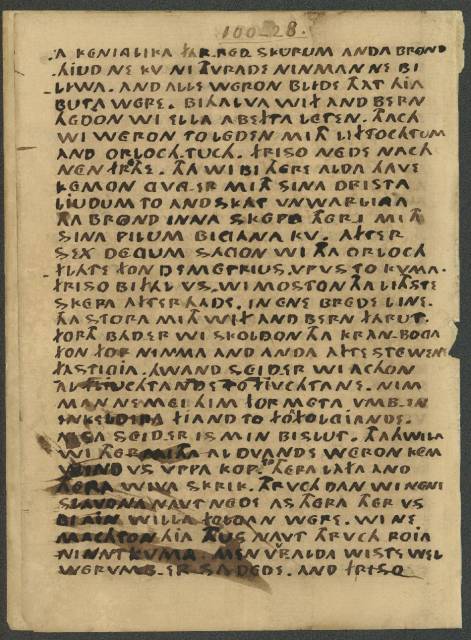 A KENINGLIKA FAR.RED SKURUM ANDA BROND
.HIUD NE KV NI THURADE NINMAN NE BI
LIWA. AND ALLE WERON BLIDE THAT HIA
BUTA WERE. BIHALVA WIF AND BERN
HEDON WI ELLA ABEFTA LETEN. THACH
WI WERON TO LEDEN MITH LIFTOCHTUM
AND ORLOCH.TUCH. FRISO NEDE NACH
NEN FRETHE. THA WI BI THERE ALDA HAVE
KEMON GVNG.ER MITH SINA DRISTA
LIUDUM TO AND SKAT UNWARLINGA
THA BROND INNA SKEPA THER.I MITH
SINA PILUM BIGANA KV. AFTER
SEX DEGUM SAGON WI THA ORLOCH
FLATE FON DEMETRIUS.VPVS TO KVMA.
FRISO BIFAL VS. WI MOSTON THA LITHSTE
SKEPA AFTERHADE. IN ENE BREDE LINE.
THA STORA MITH WIF AND BERN FARUT.
FORTH BADER WI SKOLDON THA KRAN.BOGA
FON FOR NINMA AND ANDA AFTESTEWEN
FASTIGIA. HWAND SEIDER WI ACHON
AL FLIUCHTANDE TO FIUCHTANE. NIM
MAN NE MEI HIM FOR META VMB.EN
ENKELDERA FIAND TO FORFOLGIANDE.
ALSA SEIDER IS MIN BISLUT. THAHWILA
WI THERMITHA AL DVANDE WERON KEM
WIND VS VPPA KOP. THERA LAFA AND
THERA WIVA SKRIK. THRVCH DAN WI NENE
SLAVONA NAVT NEDE AS THERA THER VS
BI AIN WILLA FOLGAN WERE. WI NE
MACHTON HIA THUS NAVT THRVCH ROIA
NI NAVT KVMA. MEN WRALDA WISTE WEL
WERVMB.ER SA DEDE. AND FRISO